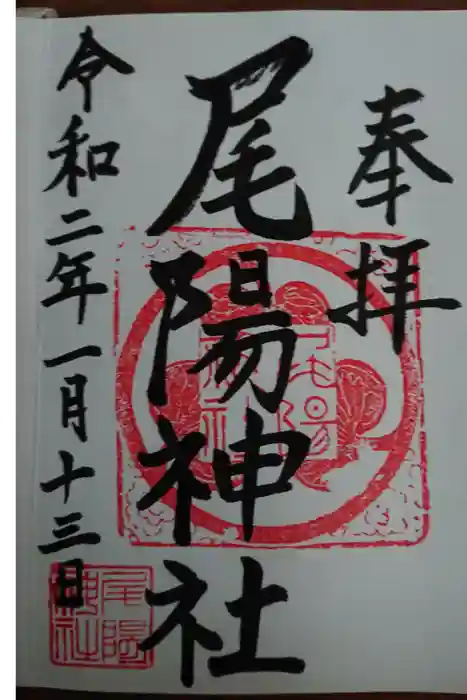 奉拝
尾陽神社
尾陽神社
令和二年一月十三日
尾陽神社